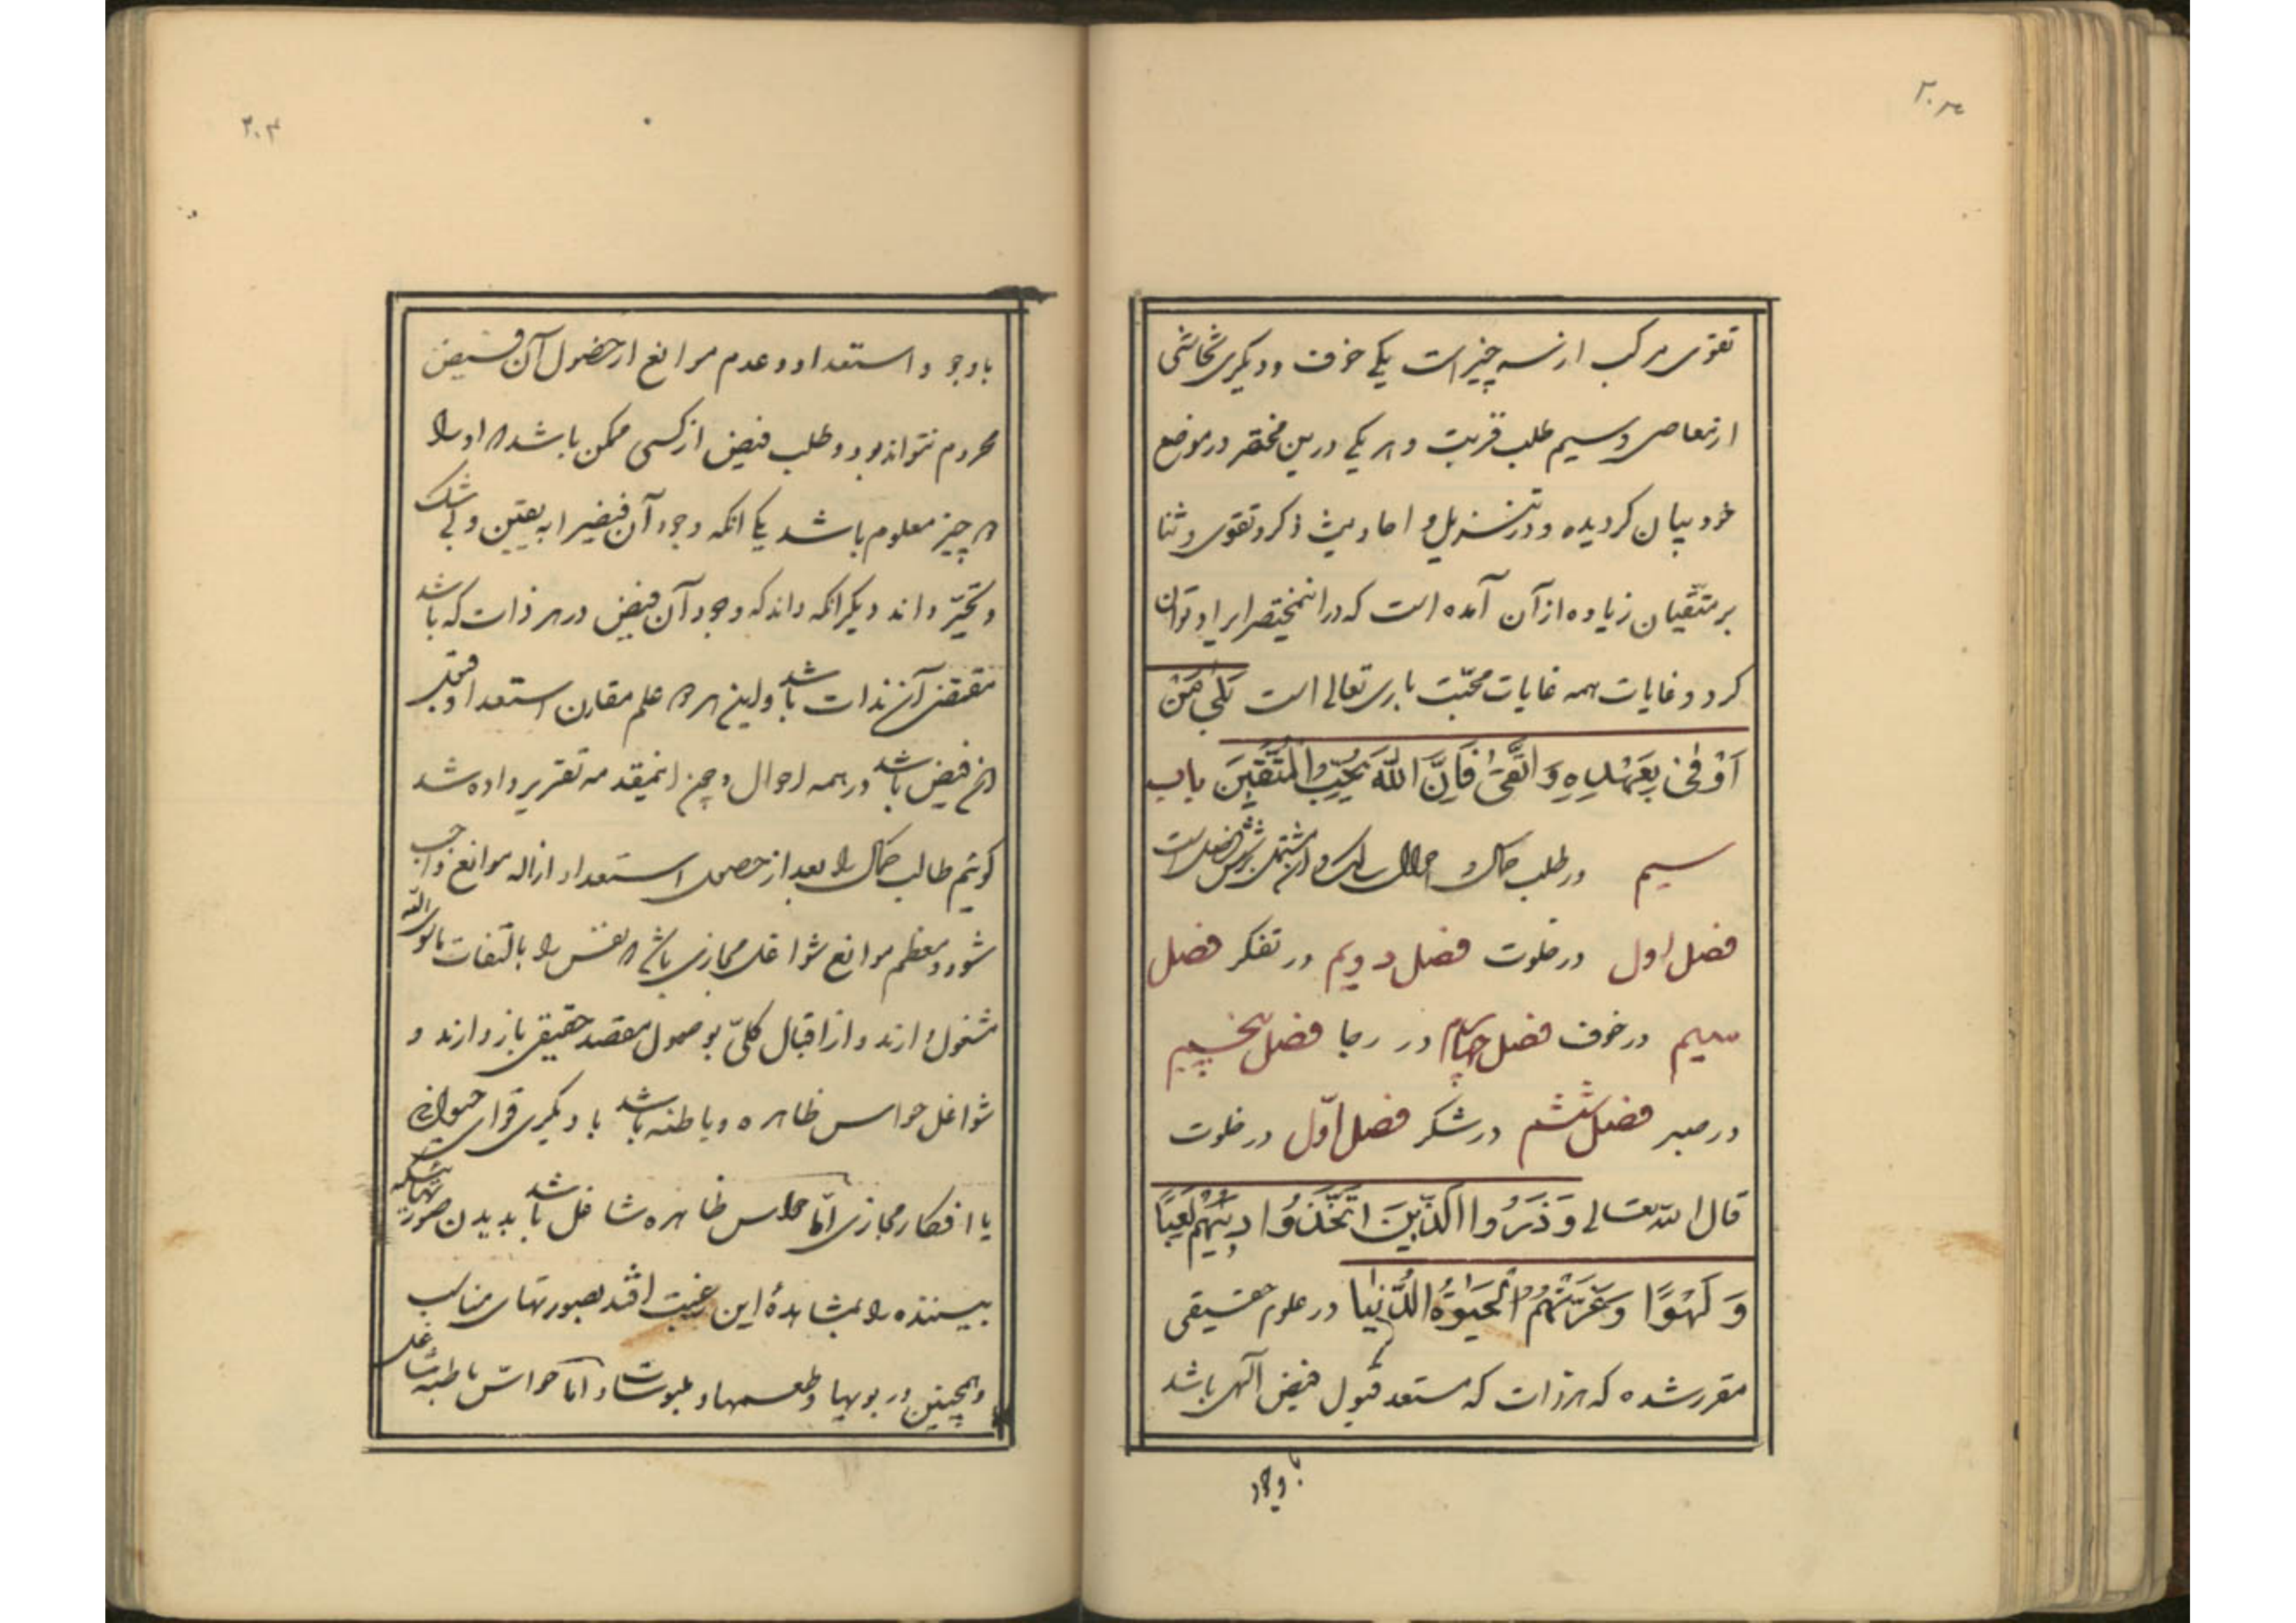 ۲۰۳
تقوی مرکب از سه چیز است یکی خوف و دیگری تحاشی
از معاصی و سیم طلب قربت و هر یکی درین مختصر در موضع
خود بیان کردیده و در تنزیل و احادیث ذکر و تقوی و ثنا
بر متّقیان زیاده از آن آمده است که در اینمختصر ایراد توان
کرد و غایات همه غایات محبّت باری تعالی است بَلٰی مَنْ
اَوْفیٰ بِعَهْدِهِ وَ اتَّقیٰ فَاِنَّ اللّٰهَ یُحِبُّ الْمُتَّقینَ باب
سیم در طلب کمال و احوال سالک و آن مشتمل بر شش فصل است
فصل اول در خلوت فصل دویم در تفکر فصل
سیم در خوف فصل چهارم در رجا فصل پنجم
در صبر فصل ششم در شکر فصل اوّل در خلوت
قال الله تعالی وَ ذَرُوا الَّذینَ اتَّخَذُوا دینَهُمْ لَعِبًا
وَ لَهْوًا وَ غَرَّتْهُمُ الْحَیٰوةُ الدُّنْیا در علوم حقیقی
مقرر شده که هر ذات که مستعد قبول فیض الهی باشد
باوجود
۲۰۴
باوجود استعداد و عدم موانع از حصول آن فیض
محروم نتواند بود و طلب فیض از کسی ممکن باشد که او را
دو چیز معلوم باشد یکی انکه وجود آن فیض را به یقین و بی شک
و تحیّر داند دیگر انکه داند که وجود آن فیض در هر ذات که باشد
مقتضی آن ذات باشد و این هر دو علم مقارن استعداد قبول
آن فیض باشد در همه احوال و چون اینمقدمه تقریر داده شد
کوئیم طالب کمال را بعد از حصول استعداد ازاله موانع واجب
شود و معظم موانع شواغل مجازی باشد که نفس را بالتفات ماسوی الله
مشغول دارند و از اقبال کلّی بوصول مقصد حقیقی باز دارند و
شواغل حواس ظاهره و باطنه باشد یا دیگری قوای حیوانی
یا افکار مجازی امّا حواس ظاهره شاغل باشد بدیدن صورتهائیکه
بیننده را بمشاهدهٔ این رغبت افتد بصورتهای مناسب
و همچنین در بویها و طعمها و ملبوسات و امّا حواسّ باطنه شاغل